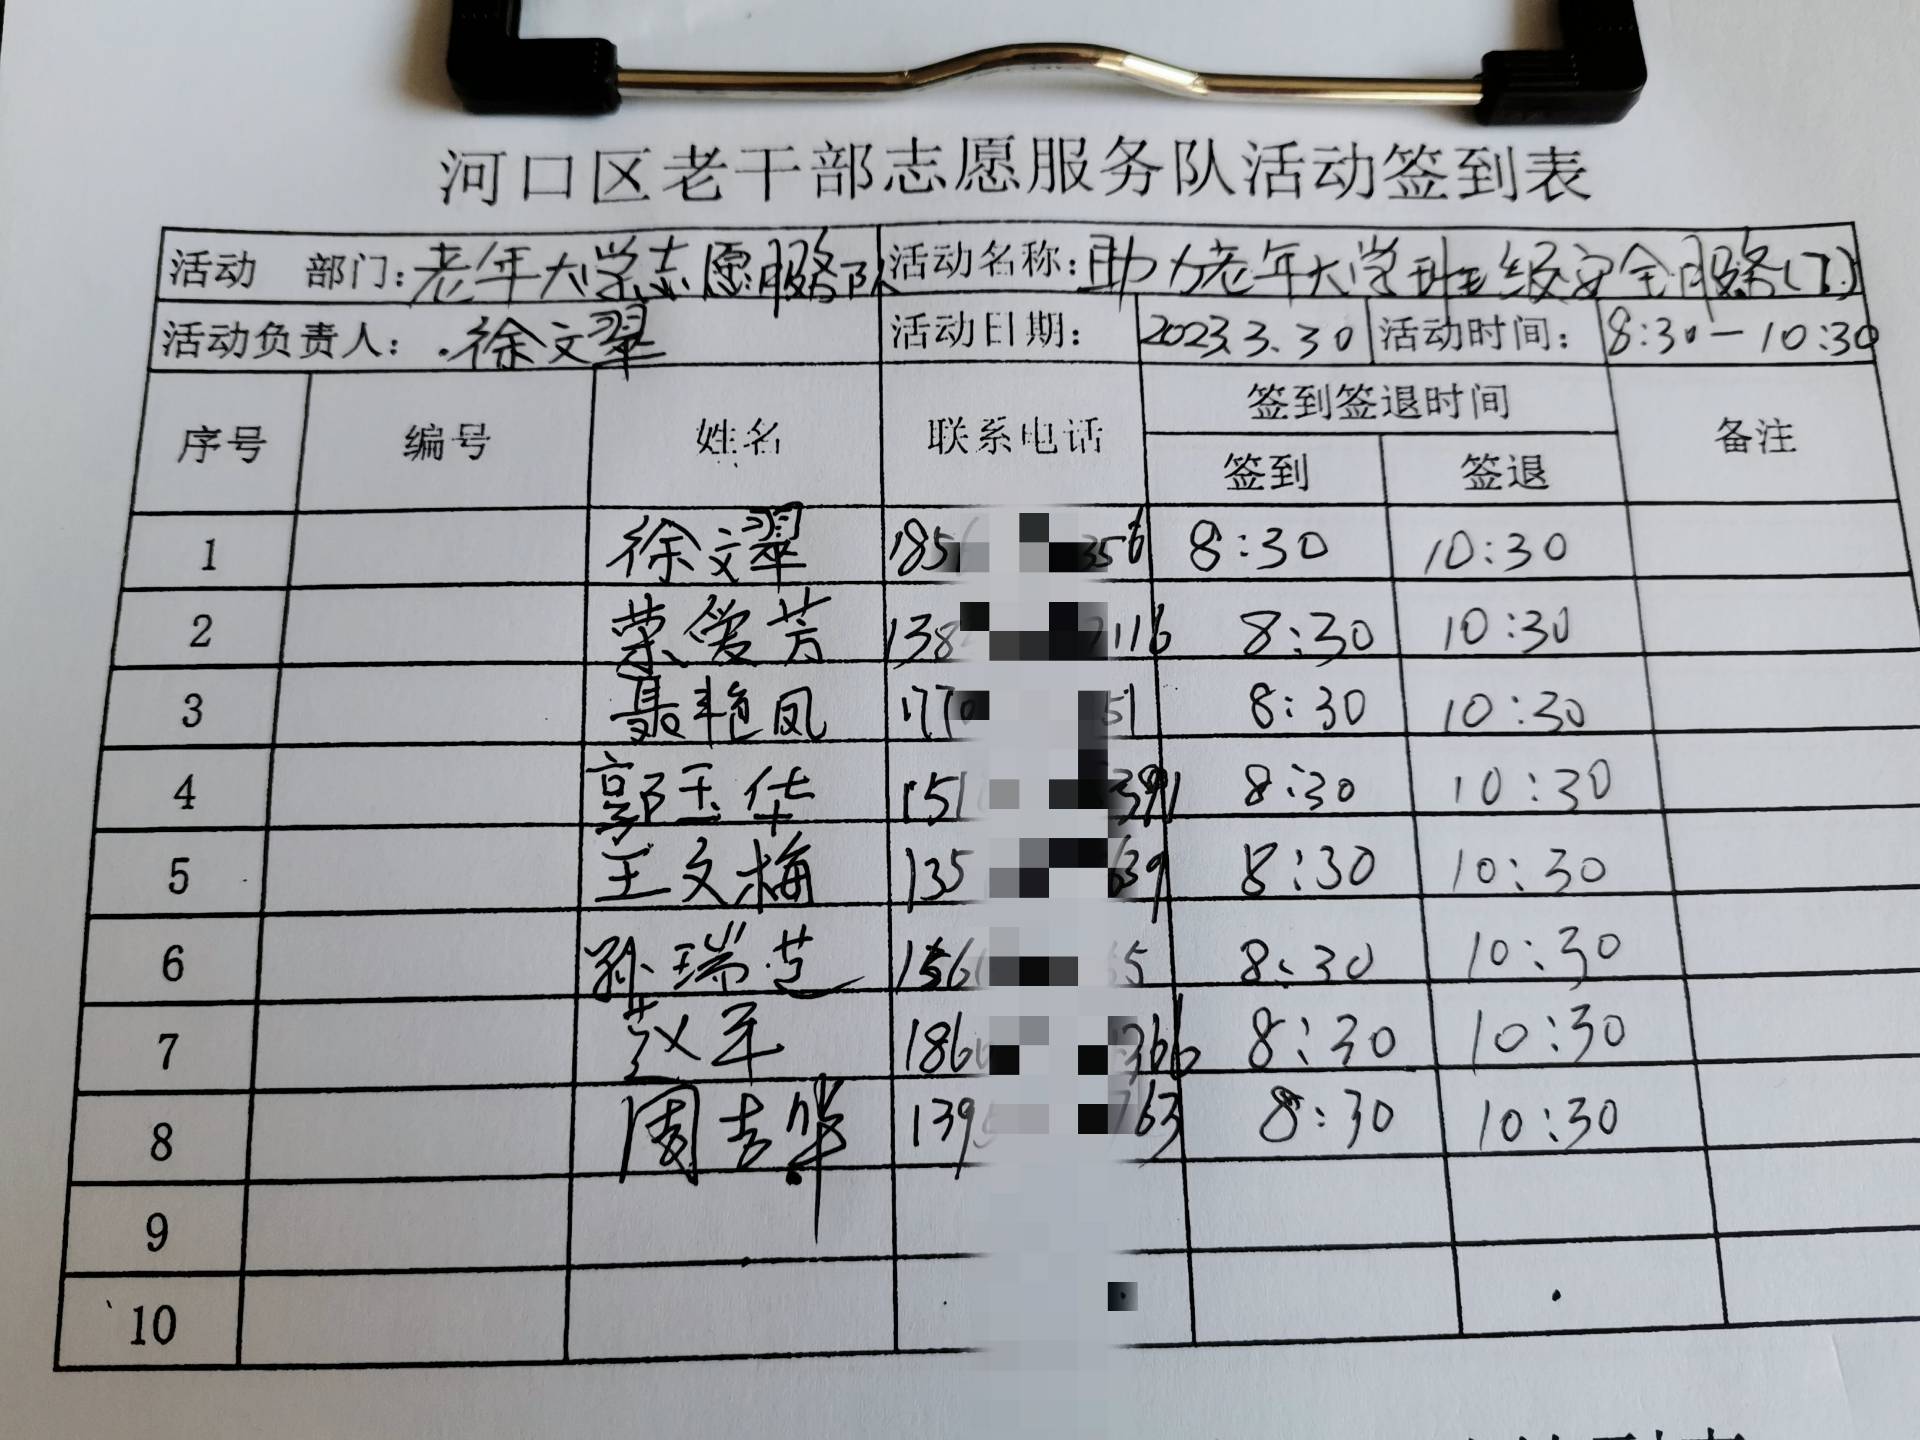 河口区老干部志愿服务队活动签到表
活动 部门：老年大学志愿服务队 活动名称：助力老年大学班级安全服务
活动负责人：徐文翠 活动日期： 2023.3.30 活动时间： 8:30-10:30
序号 编号 姓名 联系电话 签到签退时间 备注
签到 签退
1 徐文翠 185 356 8:30 10:30
2 荣爱芳 138 116 8:30 10:30
3 聂艳凤 177 51 8:30 10:30
4 郭玉华 151 391 8:30 10:30
5 王文梅 135 639 8:30 10:30
6 孙瑞芝 156 55 8:30 10:30
7 赵军 186 366 8:30 10:30
8 周吉 139 763 8:30 10:30
9
10